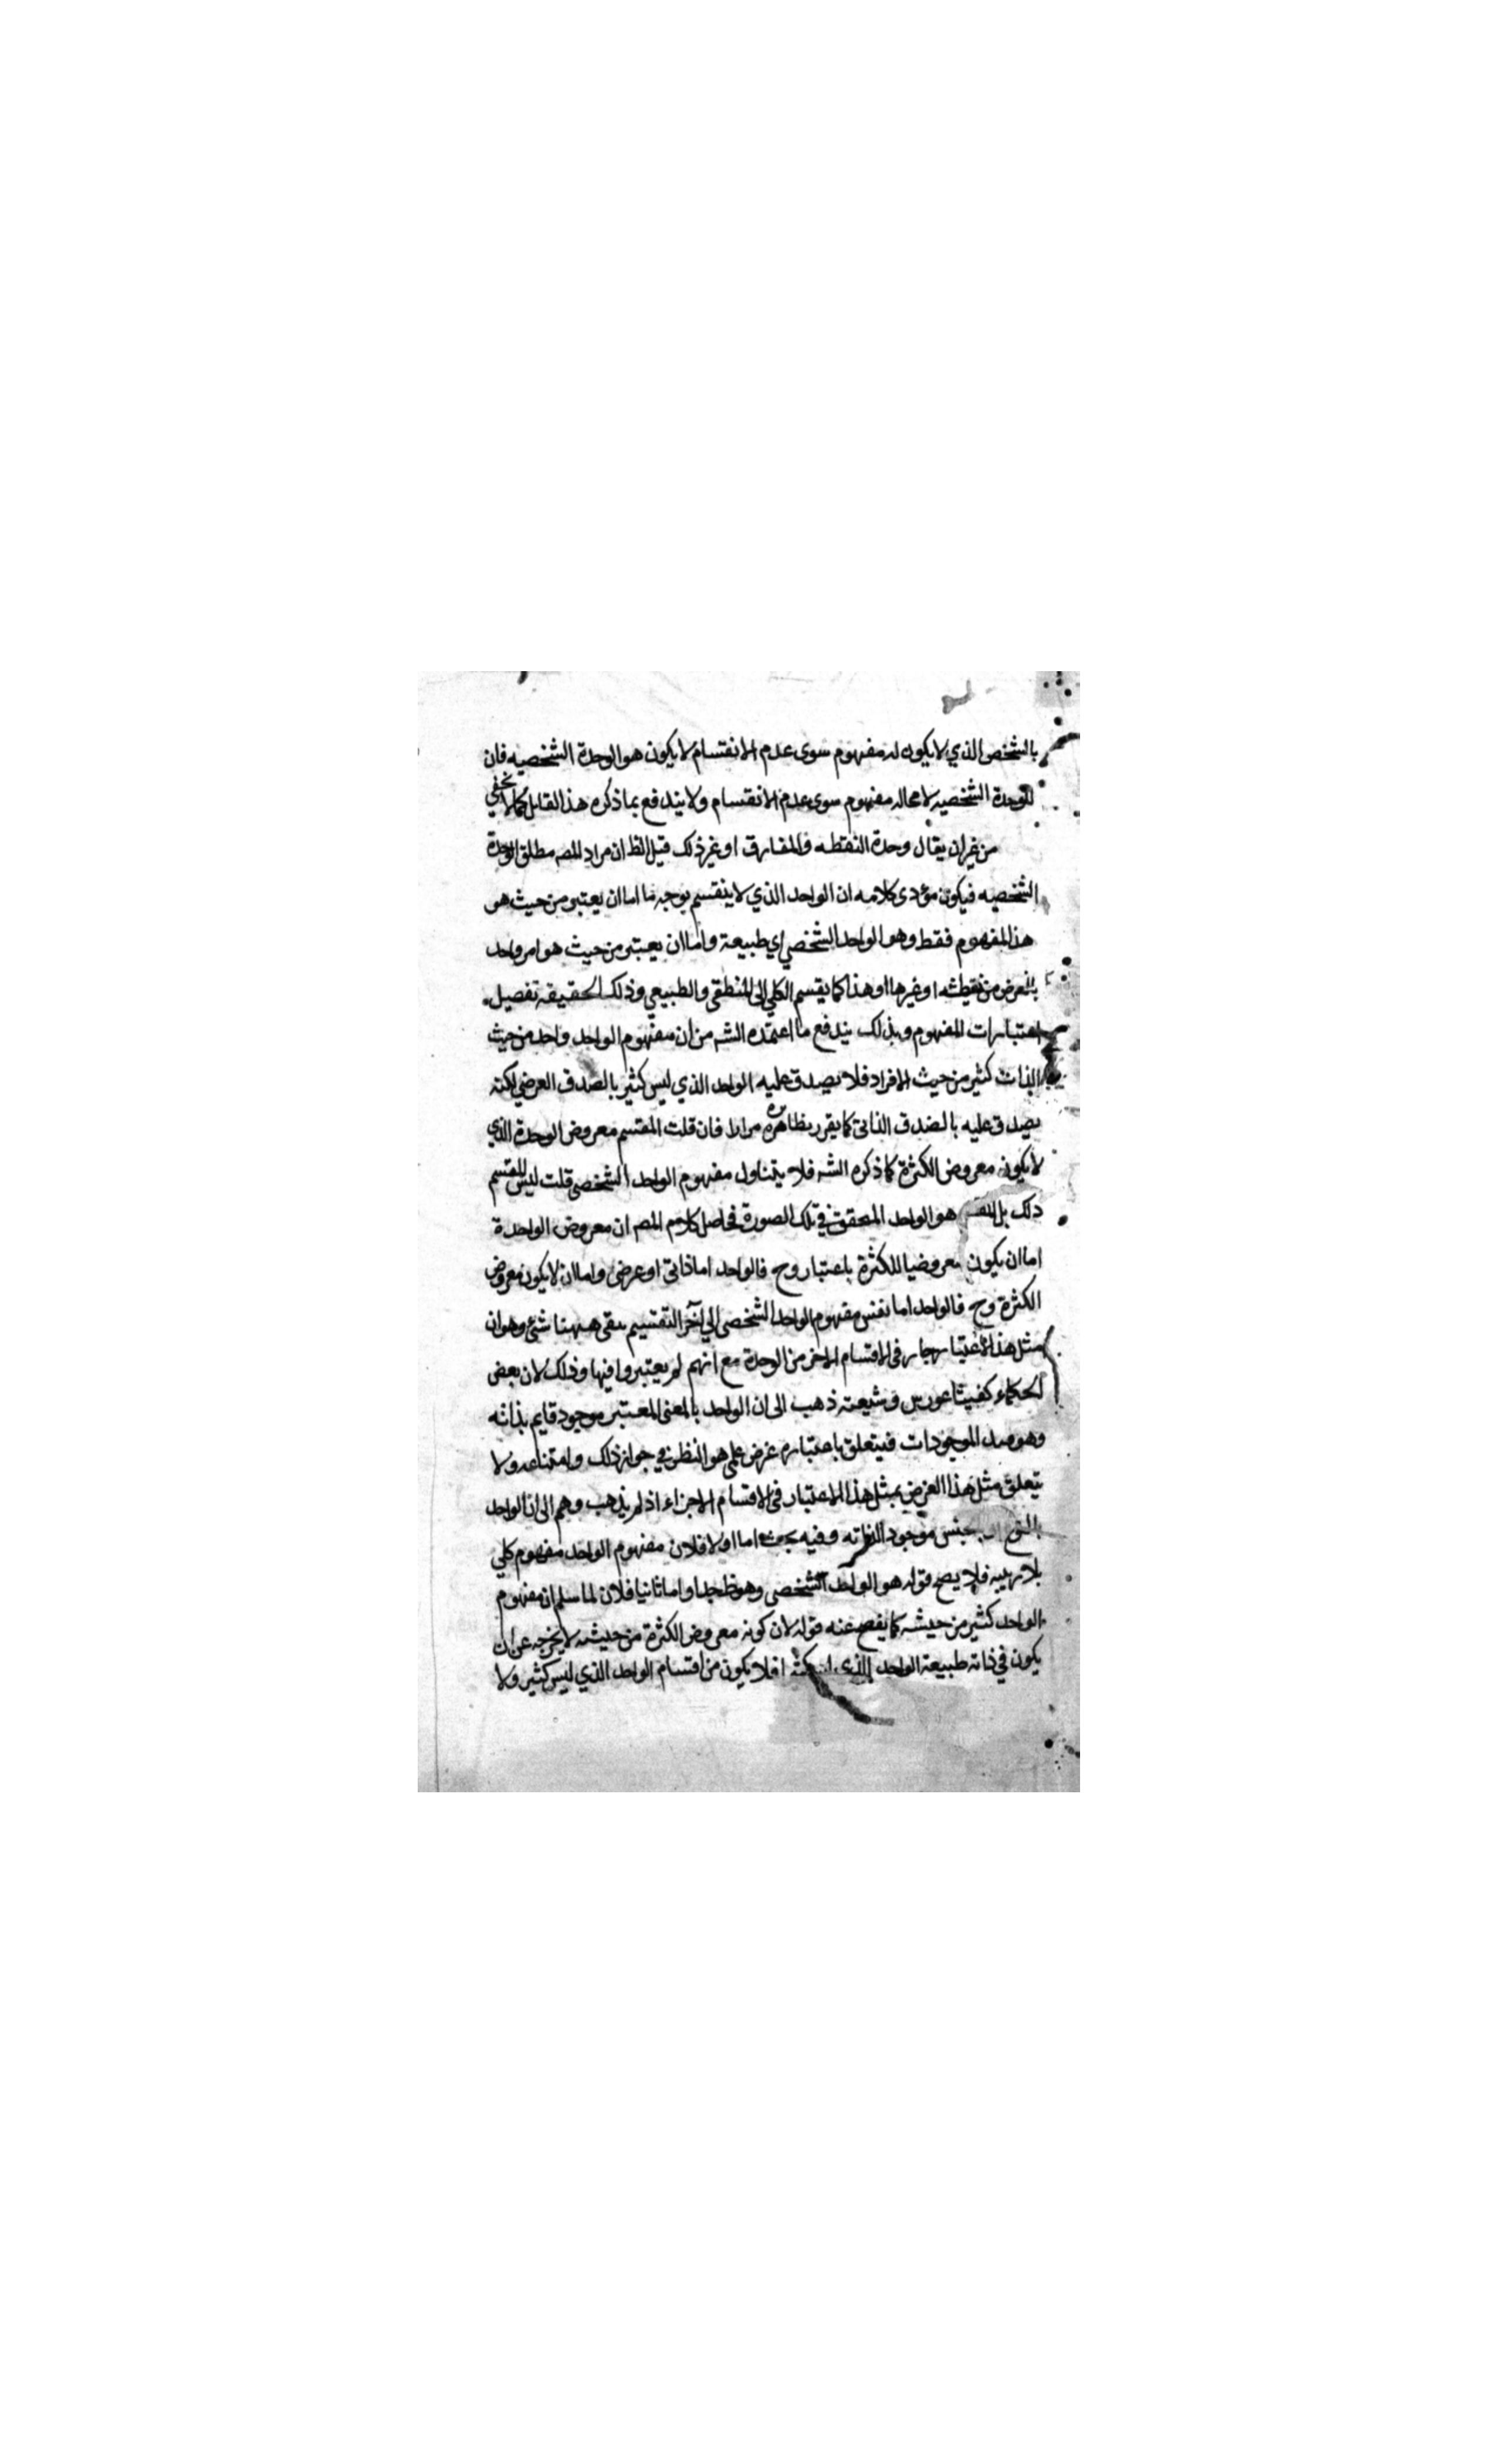 بالشخص الذي لا يكون له مفهوم سوى عدم الانقسام لا يكون هو الوحدة الشخصيه فان
للوحدة الشخصيه لا محاله مفهوم سوى عدم الانقسام ولا يندفع بما ذكره هذا القايل كما لا يخفى
من غير ان يقال وحدة النقطه والمفارق او غير ذلك قيل الظ ان مراد المصہ مطلق الوحدة
الشخصيه فيكون مؤدى كلامه ان الواحد الذي لا ينقسم بوجه ما اما ان يعتبر من حيث هو
هذا المفهوم فقط وهو الواحد الشخصي اي طبيعة واما ان يعتبر من حيث هو امر واحد
بالعرض من او غيرها او هذا كما يقسم الكلي الى المنطقى والطبيعي وذلك الحقيقه تفصيل
اعتبارات المفهوم وبذلك يندفع ما اعتمده الشہ من ان مفهوم الواحد واحد من حيث
الذات كثير من حيث الافراد فلا يصدق عليه الواحد الذي ليس كثير بالصدق العرضي لكنه
يصدق عليه بالصدق الذاتى كما يقرر نظايره مرارا فان قلت المقسم معروض الوحدة الذي
لا يكون معروض الكثرة كما ذكره الشہ فلا يتناول مفهوم الواحد الشخصى قلت ليس المقسم
ذلك بل هو الواحد المحقق في تلك الصورة فحاصل كلام المصہ ان معروض الواحدة
اما ان يكون معروضيا للكثرة باعتبار وح فالواحد اما ذاتى او عرضى واما ان لا يكون معروض
الكثرة وح فالواحد اما نفس مفهوم الواحد الشخصى الى آخر التقسيم بقى ههنا شئ وهو ان
مثل هذا الاعتبار جار فى الاقسام الاخر من الوحدة مع انهم لم يعتبروا فيها وذلك لان بعض
الحكماء كفيثاغورس وشيعته ذهب الى ان الواحد بالمعنى المعتبر موجود قايم بذاته
وهو مبدء الموجودات فيتعلق باعتباره غرض علمى هو النظر في جواز ذلك وامتناعه ولا
يتعلق مثل هذا الغرض بمثل هذا الاعتبار فى الاقسام الاجزاء اذ لم يذهب وهم الى ان الواحد
بالنوع بجنس موجود لذاته وفيه بحث اما اولا فلان مفهوم الواحد مفهوم كلي
بلا ريبه فلا يصح قوله هو الواحد الشخصى وهو ظ جدا واما ثانيا فلان لما سلم ان مفهوم
الواحد كثير من حيثيه كما يفصح عنه قوله لان كونه معروض الكثرة من حيثيه لا يخرجه عن ان
يكون في ذاته طبيعة الواحد الذي فلا يكون من اقسام الواحد الذي ليس كثير ولا